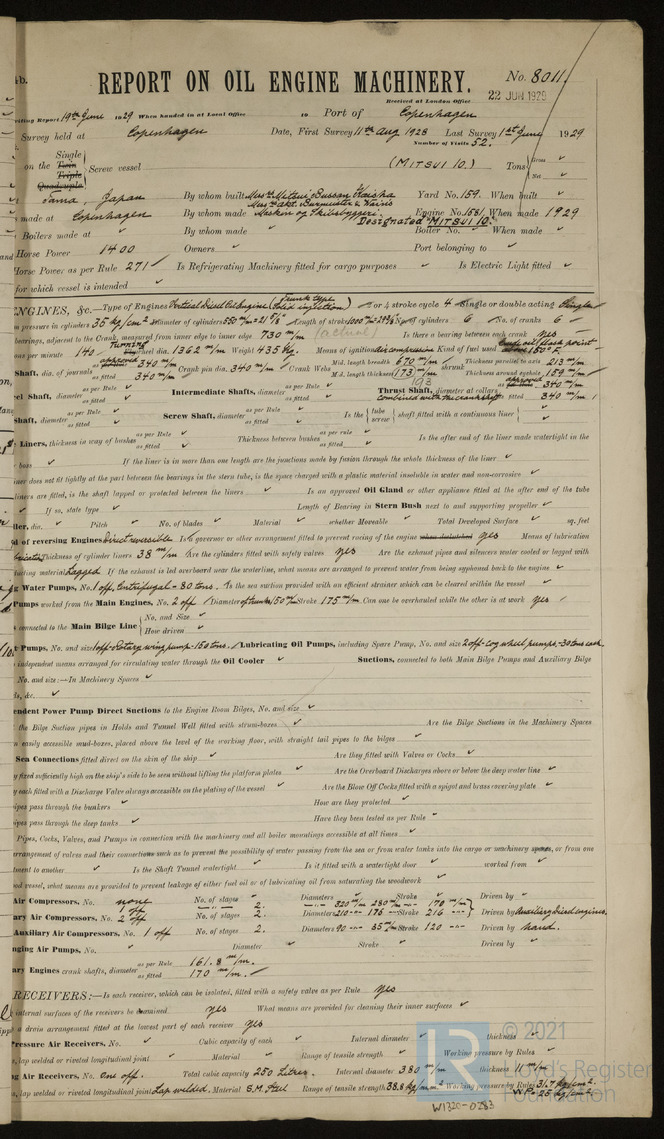 4b.
REPORT ON OIL ENGINE MACHINERY.
No. 8011.
Received at London Office
22 JUN 1929
Writing Report 19th June 1929 When handed in at Local Office to Port of Copenhagen
Survey held at Copenhagen Date, First Survey 11th Aug 1928 Last Survey 1st June 1929
Number of Visits 52.
on the Single Twin Triple Quadruple Screw vessel (MITSUI 10.) Tons Gross Net
Tama, Japan By whom built Yard No. 159. When built
made at Copenhagen By whom made Engine No. 1581 When made 1929
Designated "MITSUI 10."
Boilers made at By whom made Boiler No. When made
Horse Power 1400 Owners Port belonging to
Horse Power as per Rule 271 Is Refrigerating Machinery fitted for cargo purposes Is Electric Light fitted
for which vessel is intended
ENGINES, &c.—Type of Engines Vertical Diesel Oil Engine (trunk type solid injection) 2 or 4 stroke cycle 4 Single or double acting Single
pressure in cylinders 35 kg/cm² Diameter of cylinders 550 m/m = 21 5/8 Length of stroke 1000 m/m No. of cylinders 6 No. of cranks 6
bearings, adjacent to the Crank, measured from inner edge to inner edge 730 m/m (actual) Is there a bearing between each crank yes
per minute 140 Turning Wheel dia. 1362 m/m Weight 435 kg. Means of ignition air compression Kind of fuel used Crude oil flash point above 150° F.
Shaft, dia. of journals approved 340 m/m as fitted 340 m/m Crank pin dia. 340 m/m Crank Webs Mid. length breadth 670 m/m Mid. length thickness 173 m/m shrunk Thickness parallel to axis 213 m/m Thickness around eyehole 159 m/m
193
Shaft, diameter as per Rule as fitted Intermediate Shafts, diameter as per Rule as fitted Thrust Shaft, diameter at collars approved 340 m/m as fitted 340 m/m
combined with the crankshaft
Shaft, diameter as per Rule as fitted Screw Shaft, diameter as per Rule as fitted Is the tube screw shaft fitted with a continuous liner
Liners, thickness in way of bushes as per Rule as fitted Thickness between bushes as per rule as fitted Is the after end of the liner made watertight in the
boss If the liner is in more than one length are the junctions made by fusion through the whole thickness of the liner
does not fit tightly at the part between the bearings in the stern tube, is the space charged with a plastic material insoluble in water and non-corrosive
liners are fitted, is the shaft lapped or protected between the liners Is an approved Oil Gland or other appliance fitted at the after end of the tube
If so, state type Length of Bearing in Stern Bush next to and supporting propeller
dia. Pitch No. of blades Material whether Moveable Total Developed Surface sq. feet
of reversing Engines direct reversible Is a governor or other arrangement fitted to prevent racing of the engine when declutched yes Means of lubrication
Thickness of cylinder liners 38 m/m Are the cylinders fitted with safety valves yes Are the exhaust pipes and silencers water cooled or lagged with
material Lagged If the exhaust is led overboard near the waterline, what means are arranged to prevent water from being syphoned back to the engine
Water Pumps, No. 1 off, Centrifugal - 80 tons. Is the sea suction provided with an efficient strainer which can be cleared within the vessel
Pumps worked from the Main Engines, No. 2 off Diameter of trunks 150 m/m Stroke 175 m/m Can one be overhauled while the other is at work yes
connected to the Main Bilge Line No. and Size How driven
Pumps, No. and size 1 off - Rotary wing pump - 150 tons. Lubricating Oil Pumps, including Spare Pump, No. and size 2 off - cog wheel pumps - 30 tons each
independent means arranged for circulating water through the Oil Cooler Suctions, connected to both Main Bilge Pumps and Auxiliary Bilge
No. and size:—In Machinery Spaces
&c.
Power Pump Direct Suctions to the Engine Room Bilges, No. and size
the Bilge Suction pipes in Holds and Tunnel Well fitted with strum-boxes Are the Bilge Suctions in the Machinery Spaces
easily accessible mud-boxes, placed above the level of the working floor, with straight tail pipes to the bilges
Sea Connections fitted direct on the skin of the ship Are they fitted with Valves or Cocks
fixed sufficiently high on the ship's side to be seen without lifting the platform plates Are the Overboard Discharges above or below the deep water line
each fitted with a Discharge Valve always accessible on the plating of the vessel Are the Blow Off Cocks fitted with a spigot and brass covering plate
pipes pass through the bunkers How are they protected
pipes pass through the deep tanks Have they been tested as per Rule
Pipes, Cocks, Valves, and Pumps in connection with the machinery and all boiler mountings accessible at all times
arrangement of valves and their connections such as to prevent the possibility of water passing from the sea or from water tanks into the cargo or machinery spaces, or from one
to another Is the Shaft Tunnel watertight Is it fitted with a watertight door worked from
vessel, what means are provided to prevent leakage of either fuel oil or of lubricating oil from saturating the woodwork
Air Compressors, No. none No. of stages Diameters Stroke Driven by
1 off 2. 320 m/m 280 m/m 170 m/m
Air Compressors, No. 2 off No. of stages 2. Diameters 210 - 175 - Stroke 216 Driven by Auxiliary diesel engines.
Auxiliary Air Compressors, No. 1 off No. of stages 2. Diameters 90 - 35 m/m Stroke 120 Driven by hand.
Air Pumps, No. Diameter Stroke Driven by
Engines crank shafts, diameter as per Rule 161.8 m/m. as fitted 170 m/m.
RECEIVERS:—Is each receiver, which can be isolated, fitted with a safety valve as per Rule yes
internal surfaces of the receivers be examined yes What means are provided for cleaning their inner surfaces
a drain arrangement fitted at the lowest part of each receiver yes
Pressure Air Receivers, No. Cubic capacity of each Internal diameter thickness
lap welded or riveted longitudinal joint Material Range of tensile strength Working pressure by Rules
Air Receivers, No. One off. Total cubic capacity 250 Litres. Internal diameter 380 m/m thickness 11 m/m
lap welded or riveted longitudinal joint Lap welded. Material S.M. Steel Range of tensile strength 38.8 kg/mm² Working pressure by Rules 31.7 kg/cm².
W.P. = 25 kg/cm²
W1320-0283
LR
© 2021
Lloyd's Register
Foundation